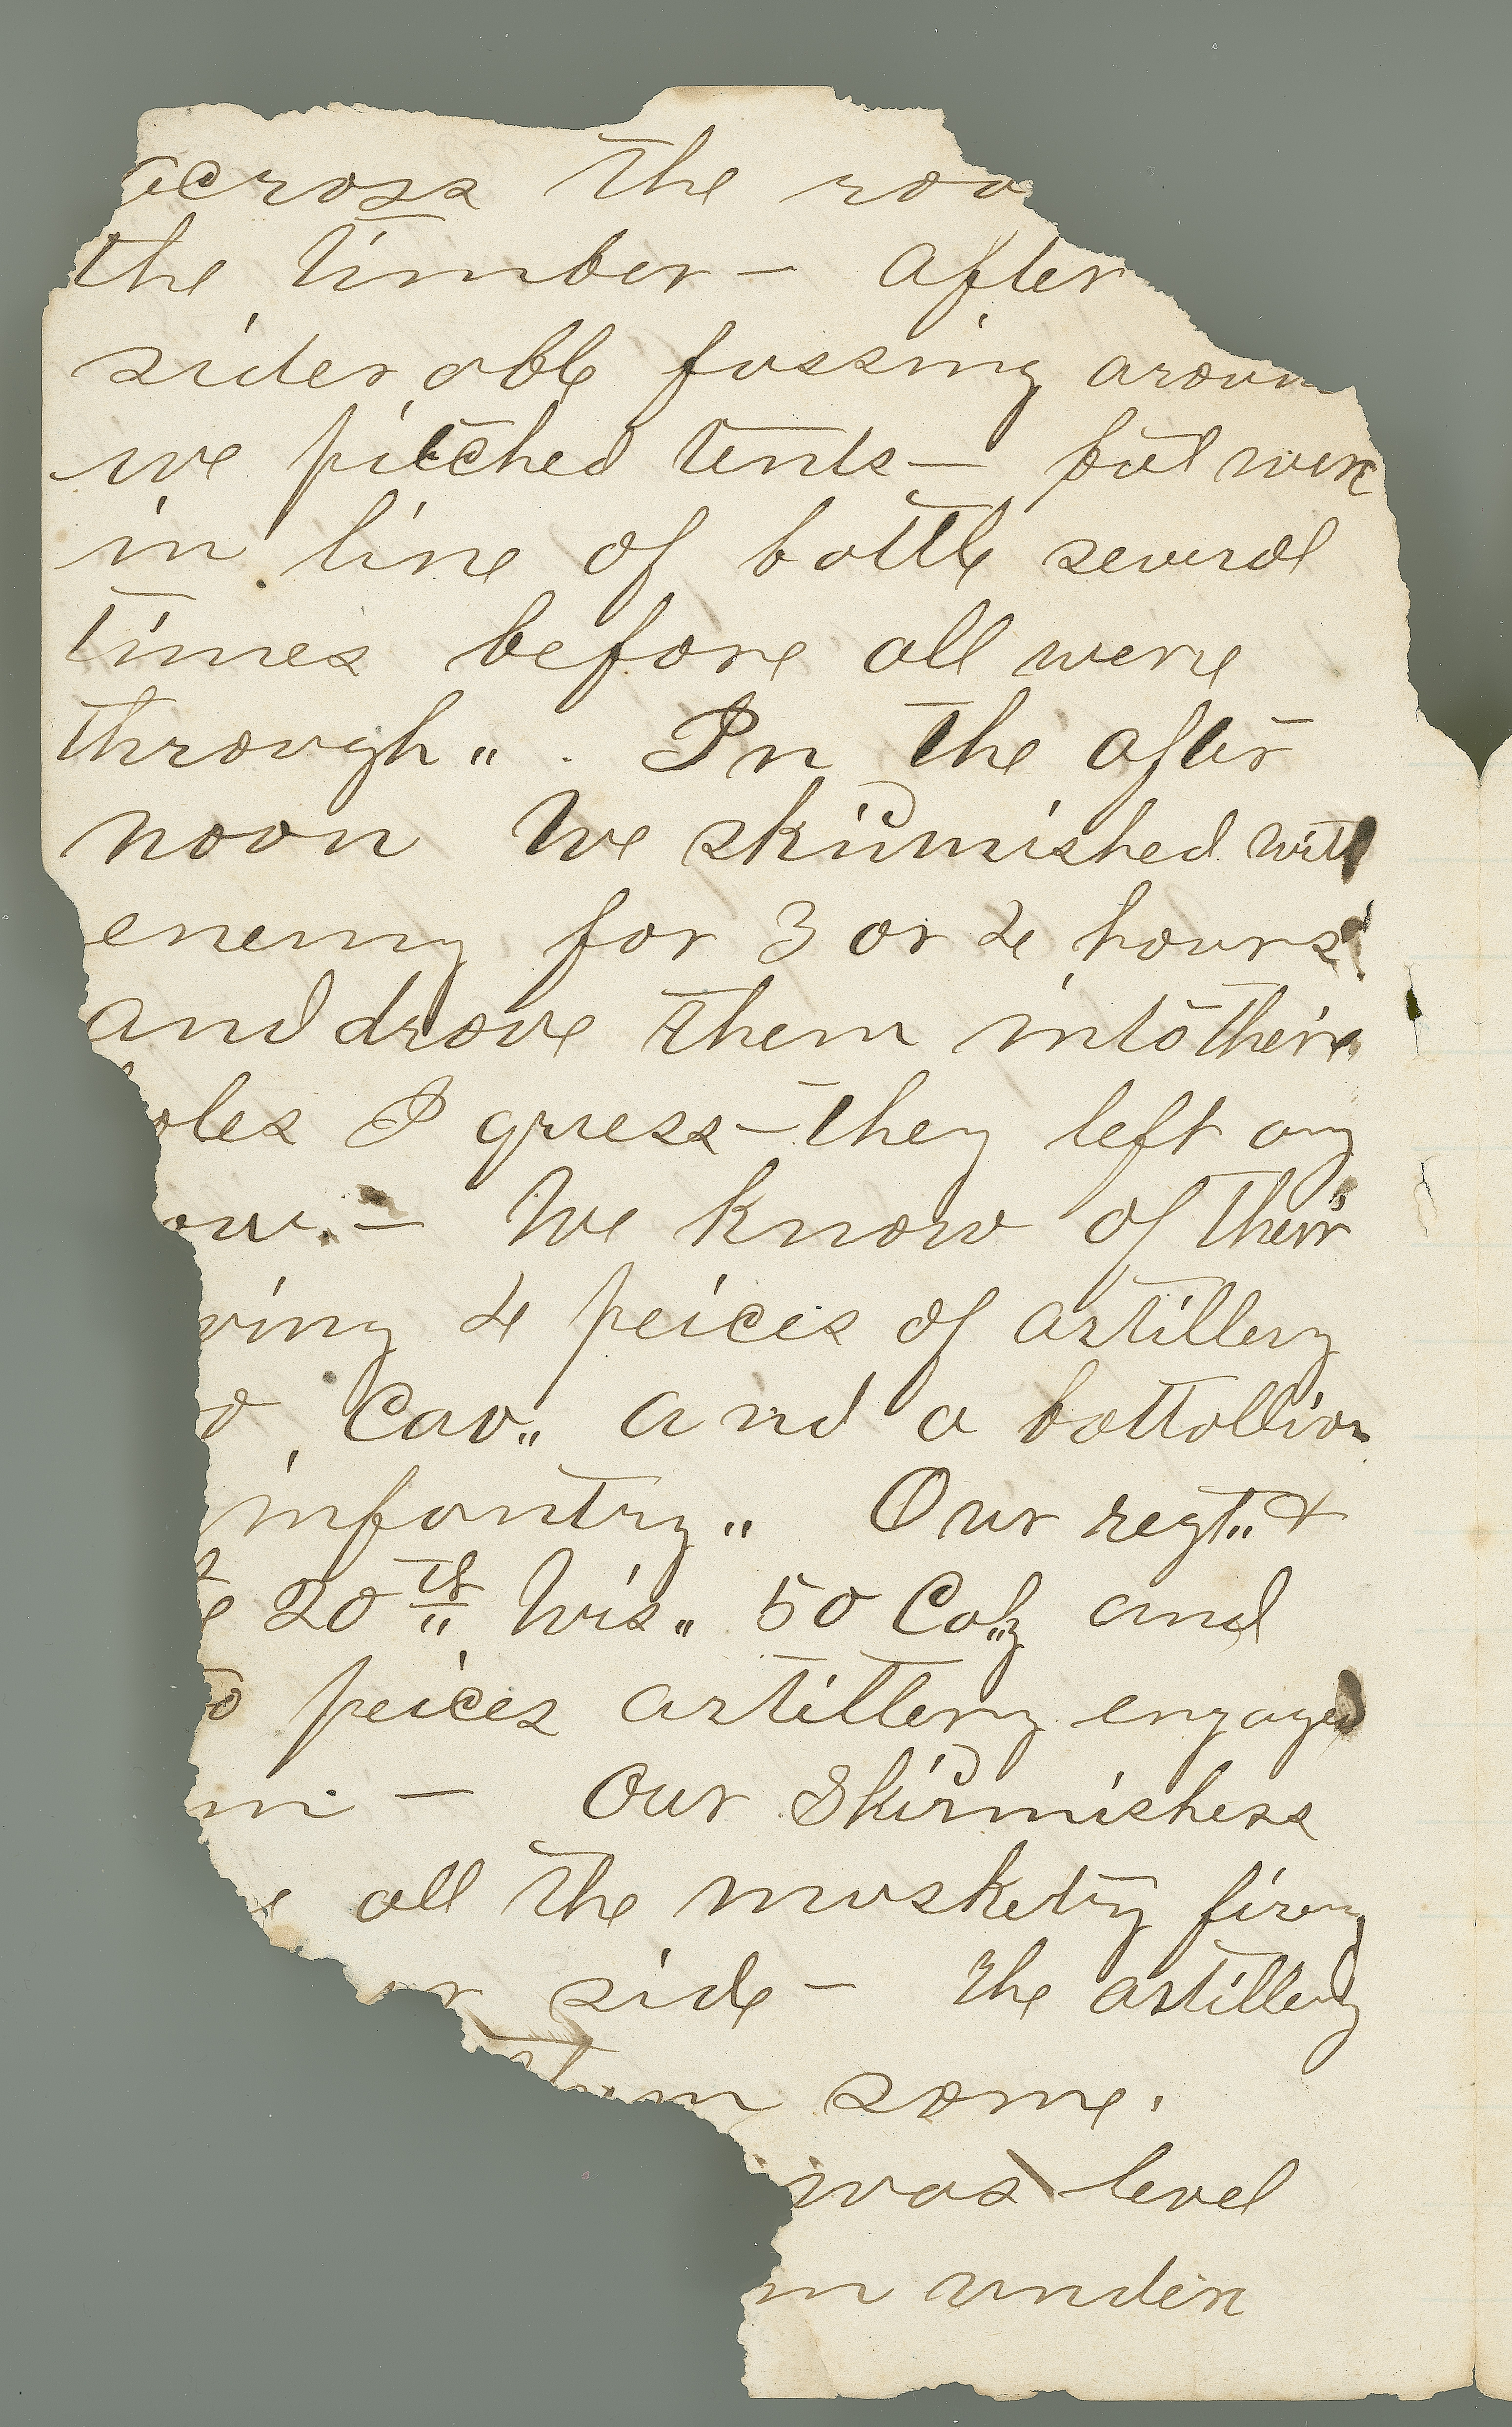 across the roa
the timber — after
siderable fussing aroun
we pitched tents — but were
in line of battle several
times before all were
through„. In the after
noon We skirmished with
enemy for 3 or 4 hours
and drove them into their
oles I guess — they left any
ow. — We know of their
ving 4 peices of artillery
d Cav„ and a battallion
infantry„ Our regt„ &
e 20th Wis„ 50 Cal'y and
o peices artillery engaged
m — Our Skirmishers
all the musketry firing
ur side — The artillery
them some.
was level
m under